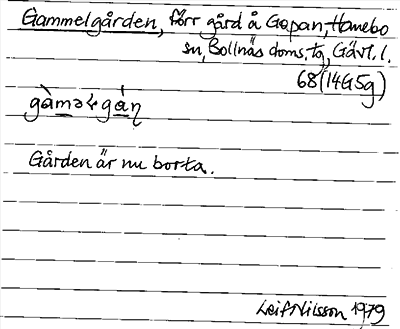 Gammelgården, förr gård å Gopan, Hanebo
sn, Bollnäs doms. tg, Gävl. l.
68(14G5g)
Gården är nu borta.
Leif Nilsson 1979